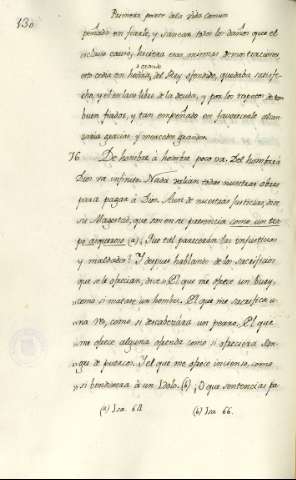 130
Primera parte dela Vida Comun
peñado en fiarle, y sanear todos los daños que el
esclavo causó, hiciera esas mismas demonstraciones
grande
otra cena en honra, del Rey ofendido, quedaba satisfe-
cho, y el esclavo libre de la deuda, y por los respetos de tan
buen fiador, y tan empeñado en favorecerle alcan-
zaria gracias, y mercedes grandes.
76 De hombre à hombre poco va. Del hombre à
Dios va infinito. Nada valian todas nuestras obras
para pagar à Dios. Aun de nuestras justicias, dice
su Magestad, que son en su presencia como un tra-
po asqueroso (a) ¿Que tal pareceràn las injusticias
y maldades? Y despues hablando de los sacrificios
que se le ofrecian, dice: El que me ofrece un Buey,
como si matase un hombre. El que me sacrifica u-
na res, como si descalabrara un perro. El que
me ofrece alguna ofrenda como si ofreciera san-
gre de puerco. Y el que me ofrece incienso, como
si bendixera à un Idolo. (b) ¡O que sentencias pa
(a) Isa. 64. (b) Isa. 66.